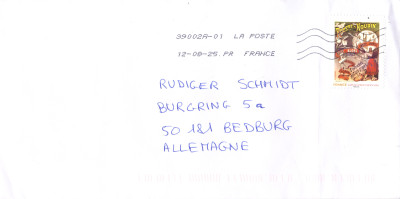 39002A-01 LA POSTE
12-08-25.PR FRANCE
RUDIGER SCHMIDT
BURGRING 5a
50 181 BEDBURG
ALLEMAGNE